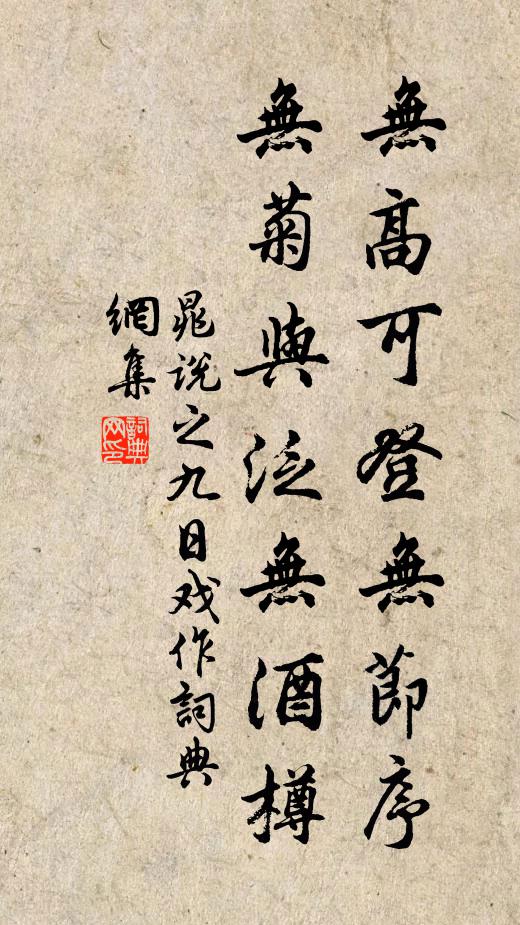 無高可登無節序
無菊與泛無酒樽
晁说之九日戏作詞典
網集
詞典网印